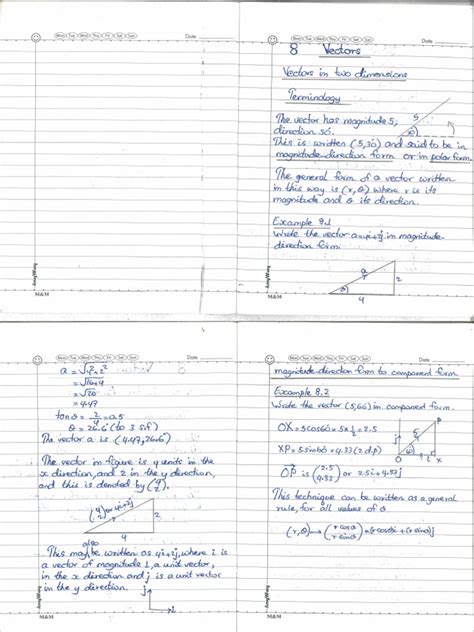 Mon Tue Wed Thu Fri Sat Sun
Date
Mon Tue Wed Thu Fri Sat Sun
Date
8 Vectors
Vectors in two dimensions
Terminology
The vector has magnitude 5,
direction 30.
5
30
This is written (5,30) and said to be in
magnitude-direction form or in polar form.
The general form of a vector written
in this way is (r,θ) where r is its
magnitude and θ its direction.
Example 8.1
Write the vector a=4i+2j in magnitude-
direction form
a
2
θ
4
M&M
M&M
Mon Tue Wed Thu Fri Sat Sun
Date
a = √4²+2²
= √16+4
= √20
= 4.47
tanθ = 2/4 = 0.5
θ = 26.6 (to 3 sif)
The vector a is (4.47, 26.6)
The vector in figure is 4 units in the
x direction, and 2 in the y direction,
and this is denoted by (4 2).
(4 2) or 4i+2j
2
4
also
This may be written as 4i+2j, where i is
a vector of magnitude 1, a unit vector,
in the x direction and j is a unit vector
in the y direction.
j
i
M&M
Mon Tue Wed Thu Fri Sat Sun
Date
magnitude-direction form to component form.
Example 8.2
Write the vector (5,60) in component form.
OX = 5cos60 = 5×½ = 2.5
XP = 5sin60 = 4.33 (2 d.p)
OP is (2.5 4.33) or 2.5i+4.33j
P
5
j
60
O
i
X
This technique can be written as a general
rule, for all values of θ
(r,θ) → (r cosθ r sinθ) = (r cosθ)i + (r sinθ)j
M&M